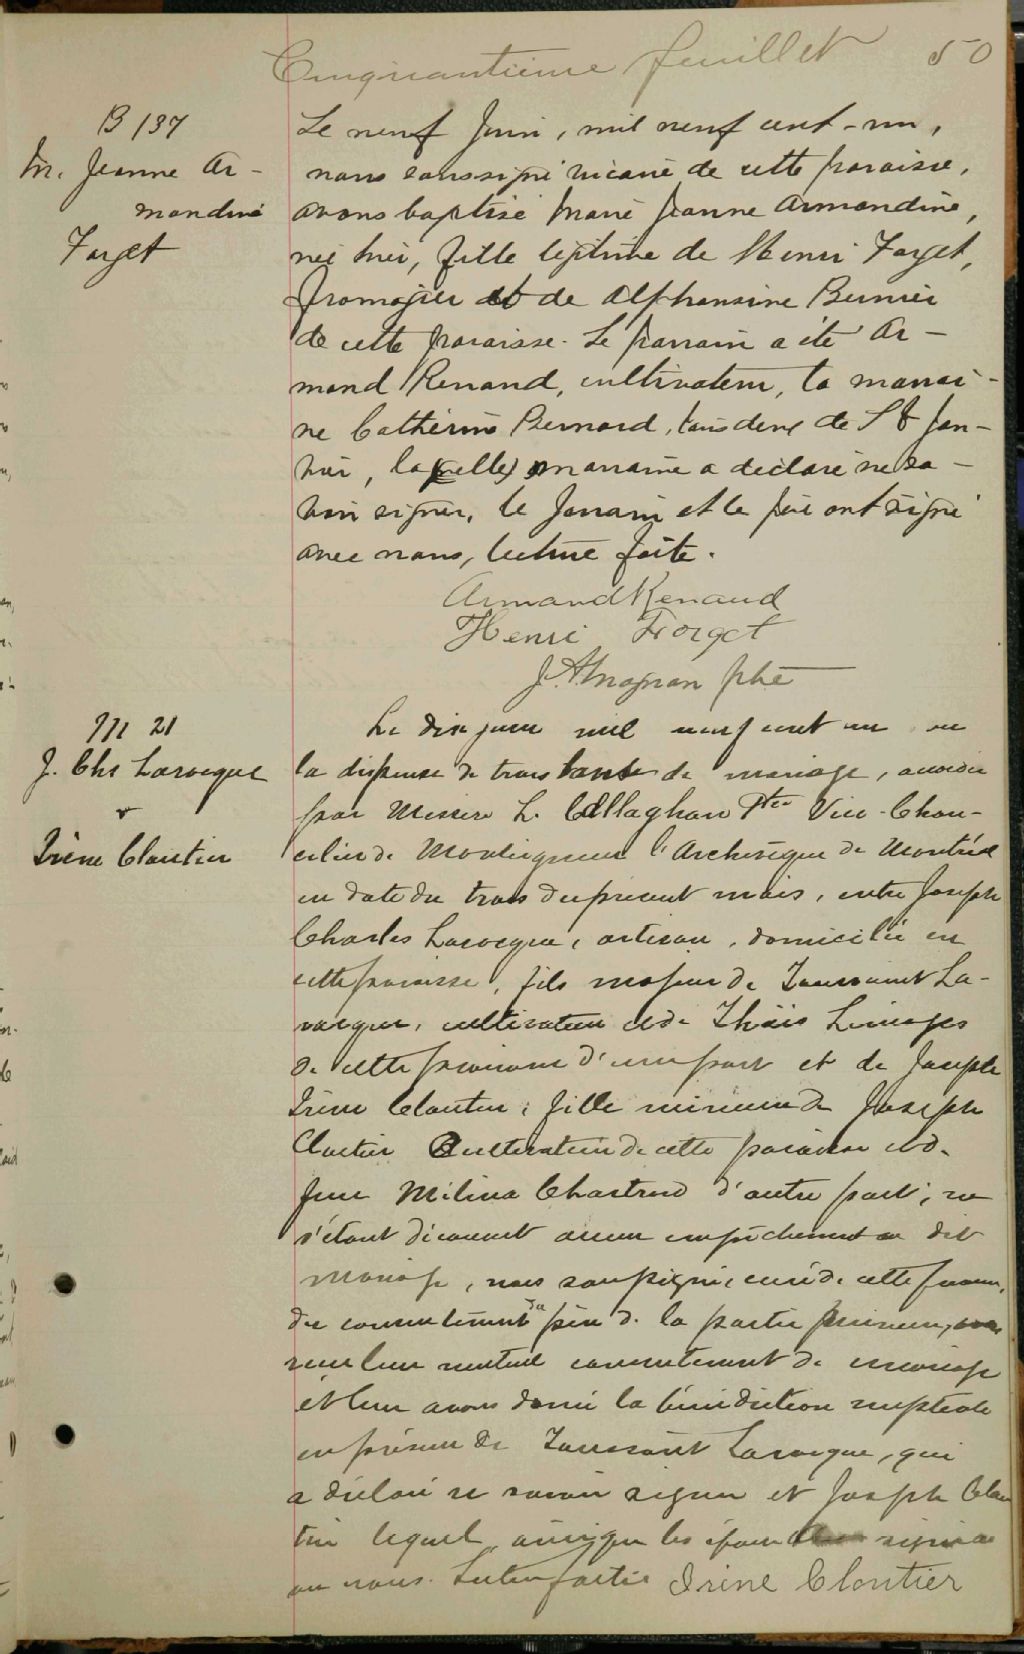 Cinquantième feuillet 50
B 137
M. Jeanne Ar-
mandine
Forget
Le neuf Juin, mil neuf cent-un,
nous soussigné vicaire de cette paroisse,
avons baptisé Marie Jeanne Armandine,
née hier, fille légitime de Henri Forget,
fromagier et de Alphonsine Bernier
de cette paroisse. Le parrain a été Ar-
mand Renaud, cultivateur, la marrai-
ne Catherine Bernard, tous deux de St Jan-
vier, laquelle marraine a déclaré ne sa-
voir signer, le parrain et le père ont signé
avec nous, lecture faite.
Armand Renaud
Henri Forget
J. A. Magnan ptre
M 21
J. Chs Larocque
&
Irène Cloutier
Le dix juin mil neuf cent un vu
la dispense de trois bans de mariage, accordée
par Messire L. Callaghan Ptre Vice-Chan-
celier de Monseigneur l'Archevêque de Montréal
en date du trois du présent mois, entre Joseph
Charles Larocque, artisan, domicilié en
cette paroisse, fils majeur de Toussaint La-
rocque, cultivateur et de Thaïs Limoges
de cette paroisse d'une part et de Joseph
Irène Cloutier, fille mineure de Joseph
Cloutier cultivateur de cette paroisse et de
feue Mélina Chartrand d'autre part; ne
s'étant découvert aucun empêchement au dit
mariage, nous soussigné, curé de cette paroisse,
du consentement du père de la partie mineure, avons
reçu leur mutuel consentement de mariage
et leur avons donné la bénédiction nuptiale
en présence de Toussaint Larocque, qui
a déclaré ne savoir signer et Joseph Clou
tier lequel ainsi que les époux signé
avec nous. Lecture faite Irène Cloutier